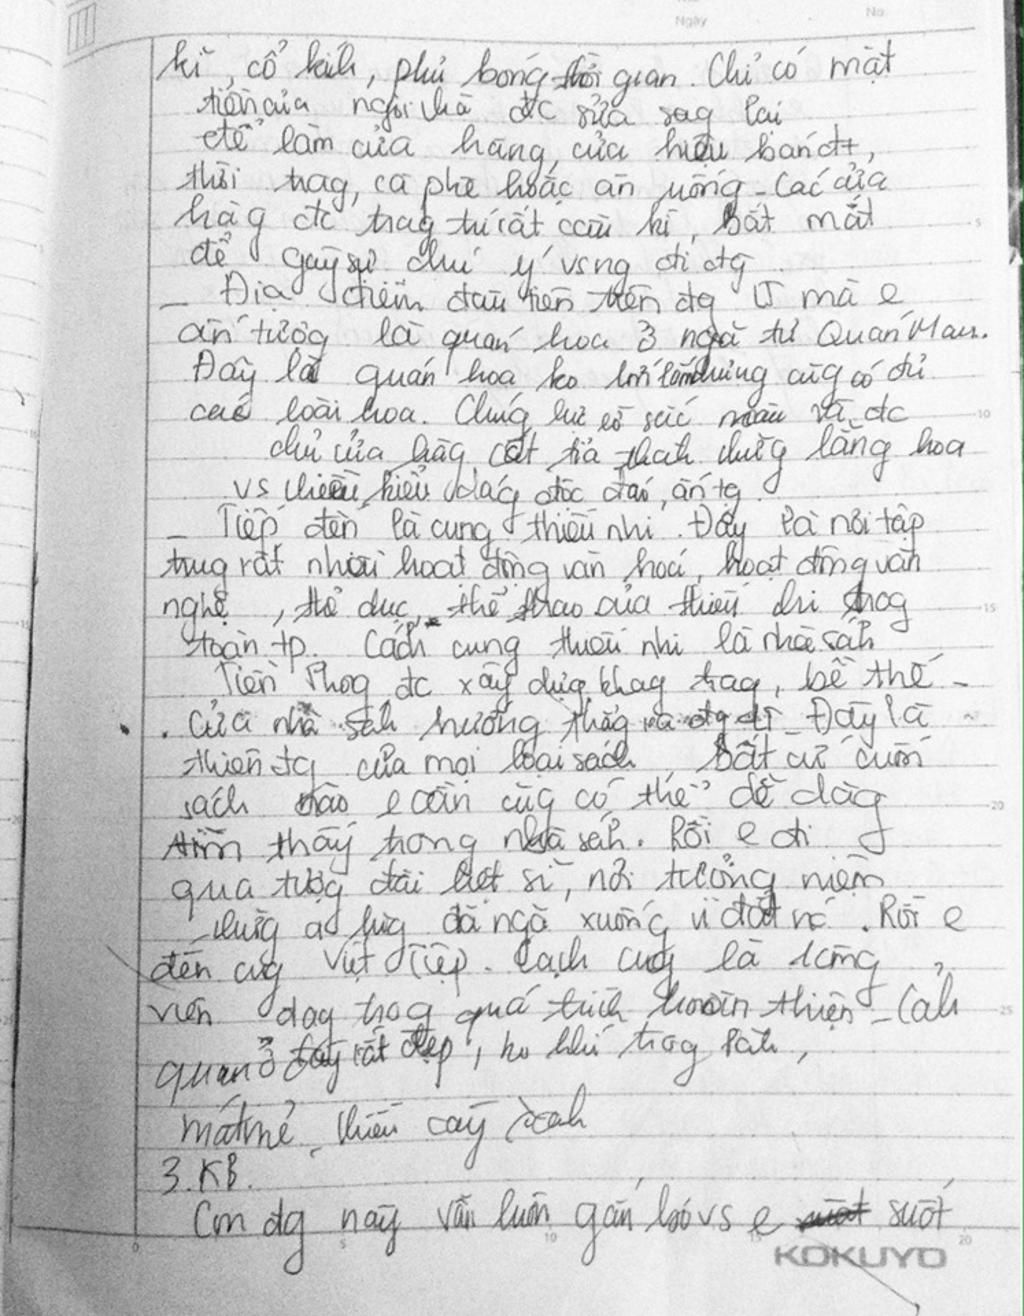 Ngày
No
kì, cổ kính, phủ bóng thời gian. Chỉ có mặt
tiền của ngôi nhà đc sửa sag lại
để làm cửa hàng, cửa hiệu bán đt,
thời trag, cà phê hoặc ăn uống. Các cửa
hàg đc trag trí rất cầu kì, bắt mắt
để gây sự chú ý vs ng đi đg
- Địa điểm đầu tiên trên đg mà e
ấn tượg là quán hoa ở ngã tư Quán Mau.
Đây là quán hoa ko lớn lắm nhưng cũg có đủ
các loài hoa. Chúg màu và đc
chủ cửa hàg cắt tỉa thàh nhữg lẵng hoa
vs nhiều kiểu dág độc đáo, ấn tg.
- Tiếp đến là cung thiếu nhi. Đây là nơi tập
trug rất nhiều hoạt động văn hoá, hoạt động văn
nghệ, thể dục, thể thao của thiếu nhi trog
toàn tp. Cách cung thiếu nhi là nhà sách
Tiền Phog đc xây dựg khag trag, bề thế
. Cửa nhà sách hướng thẳg ra Đây là
thiên đg của mọi loại sách Bất cứ cuốn
sách nào e cần cũg có thể dễ dàg
tìm thấy trong nhà sách. Rồi e đi
qua tượg đài liệt sĩ, nơi tưởng niệm
nhữg a hùg đã ngã xuống vì đất nc. Rồi e
đến cug Việt Tiệp. Cạch cug là công
viên đag trog quá trình hoàn thiện. Cảh
quan ở đây rất đẹp, ko khí trog làh,
mát mẻ, nhiều cây xah
3. KB.
Con đg này vẫn luôn gắn bó vs e suốt
5
10
15
20
25
0 5 10 15 20
KOKUYO